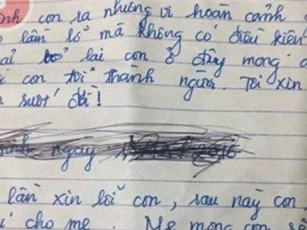 inh con ra nhưng vì hoàn cảnh
lầm lỡ mà không có điều kiện
bỏ lại con ở đây mong
con tới thành người. Tôi xin
n suốt đời!
ngày 2016
lần xin lỗi con, sau này con
cho mẹ. Mẹ mong con